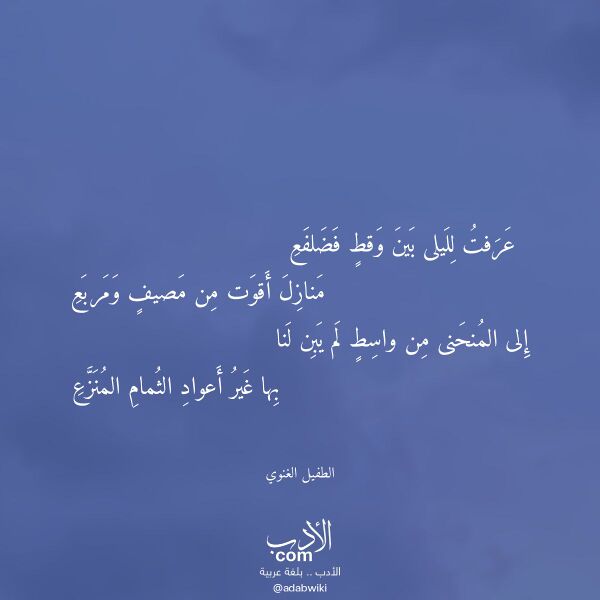 عَرَفتُ لِلَيلى بَينَ وَقطٍ فَضَلفَعِ
مَنازِلَ أَقوَت مِن مَصيفٍ وَمَربَعِ
إِلى المُنحَنى مِن واسِطٍ لَم يَبِن لَنا
بِها غَيرُ أَعوادِ الثُمامِ المُنَزَّعِ
الطفيل الغنوي
الأدب
com
الأدب .. بلغة عربية
@adabwiki